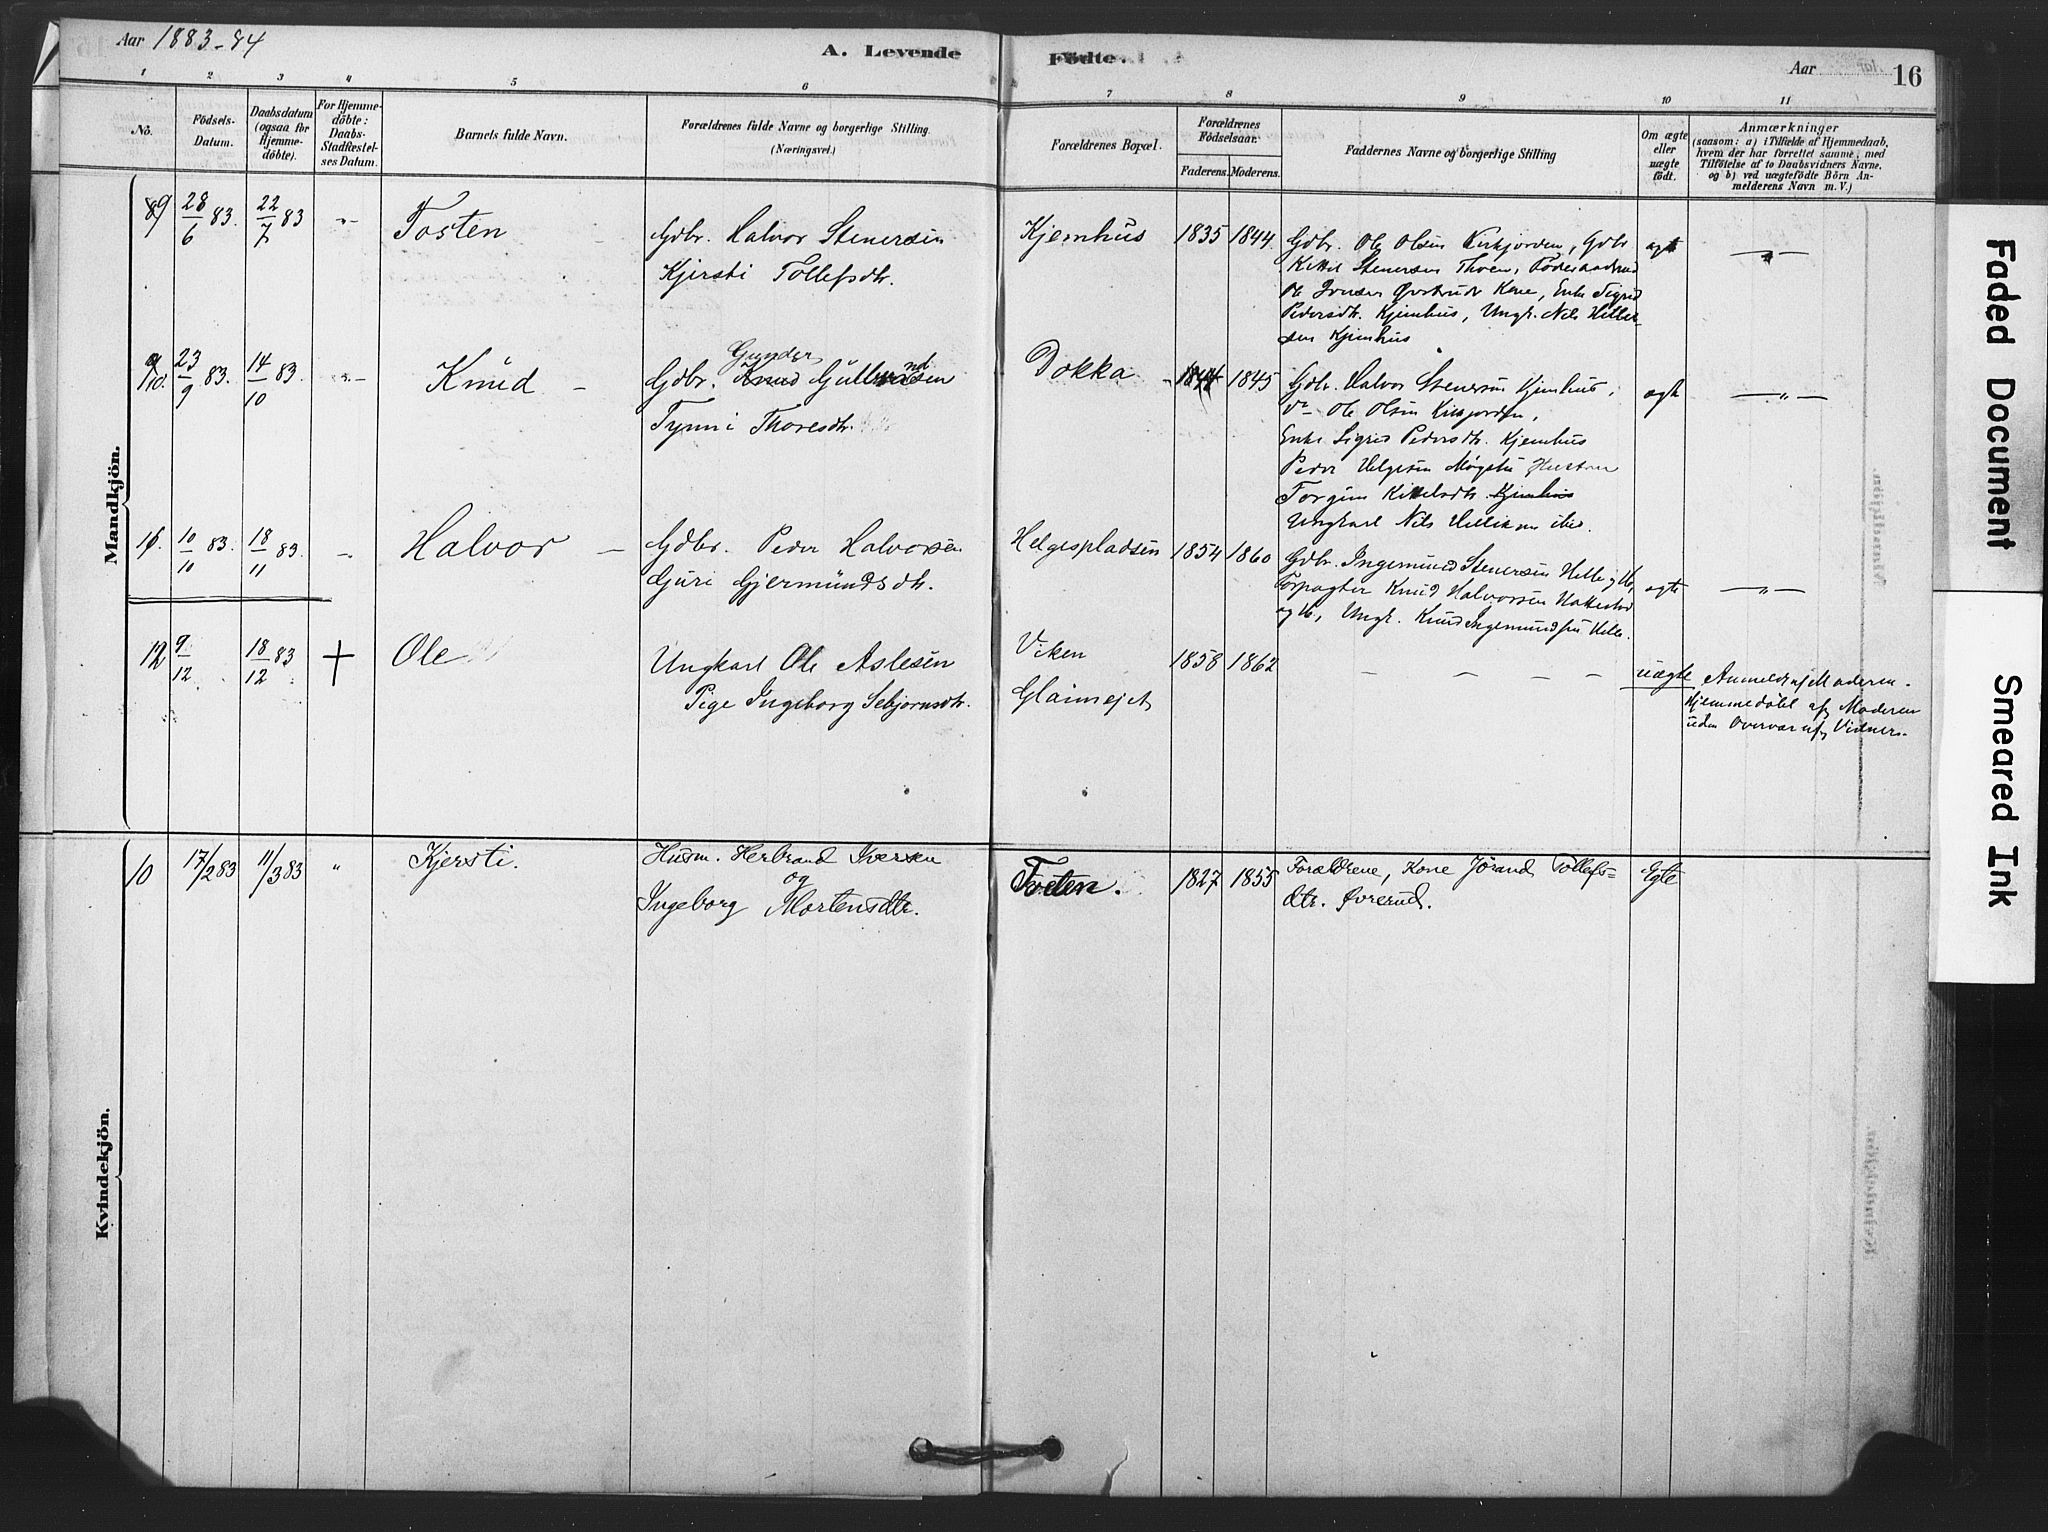 Aar 1883-84
A. Levende Fødte.
Aar 16
1 2 3 4 5 6 7 8 9 10 11
No.
Fødsels-
Datum.
Daabsdatum
(ogsaa for
Hjemme-
døbte).
For Hjemme-
døbte:
Daabs-
Stadfæstel-
ses Datum.
Barnets fulde Navn.
Forældrenes fulde Navne og borgerlige Stilling
(Næringsvei.)
Forældrenes Bopæl.
Forældrenes
Fødselsaar.
Faderens. Moderens.
Faddernes Navne og borgerlige Stilling
Om ægte
eller
uægte
født.
Anmærkninger
(saasom: a) i Tilfælde af Hjemmedaab,
hvem der har forrettet samme, med
Tilføielse af to Daabsvidners Navne,
og b) ved uægtefødte Børn An-
melderens Navn m. V.)
Mandkjön.
9 28/6 83. 22/7 83 -"- Tosten
Gdbr. Halvor Stenersen
Kjersti Tollefsdtr.
Kjemhus 1835 1844
Gdbr. Ole Olsen Kirkjorden, Gdbr
Kittil Stenersen Thoen,
Ole Jonsen Kone, Enke Sigrid
Pedersdtr. Kjemhus, Ungk. Nils Hellik-
sen Kjemhus
ægte -"-
10. 23/9 83. 14/10 83. -"- Knud -
Gunder
Gdbr. Knud Gulbrandsen
Tynni Thoresdtr.
Dokka 1844 1845
Gdbr. Halvor Stenersen Kjemhus,
do Ole Olsen Kirkjorden,
Enke Sigrid Pedersdtr. Kjemhus
Peder Helgesen Møgstu Hustru
Torgun Kittelsdtr. Kjemhus
Ungkarl Nils Helliksen ibid.
ægte -"-
11. 10/10 83. 18/11 83. -"- Halvor -
Gdbr. Peder Halvorsen
Guri Gjermundsdtr.
Helgespladsen 1854 1860
Gdbr. Ingemund Stenersen Helle og H,
Forpagter Knud Halvorsen Hattestad
og H, Ungk. Knud Ingemundsen Helle.
ægte -"-
12 9/12 18/12 83 + Ole
Ungkarl Ole Aslesen
Pige Ingeborg Sebjørnsdtr.
Viken
Glaimejet
1858 1862 - - - - uægte
Anmeldt af Moderen.
Hjemmedøbt af Moderen
uden Overvær af Vidner.
Kvindekjön.
10 17/2 83 11/3 83 " Kjersti.
Husm. Herbrand Iversen
og
Ingeborg Mortensdtr.
Tveten. 1827 1855
Forældrene, Kone Jørand Tollefs=
dtr. Øvrerud.
Egte
Faded Document
Smeared Ink